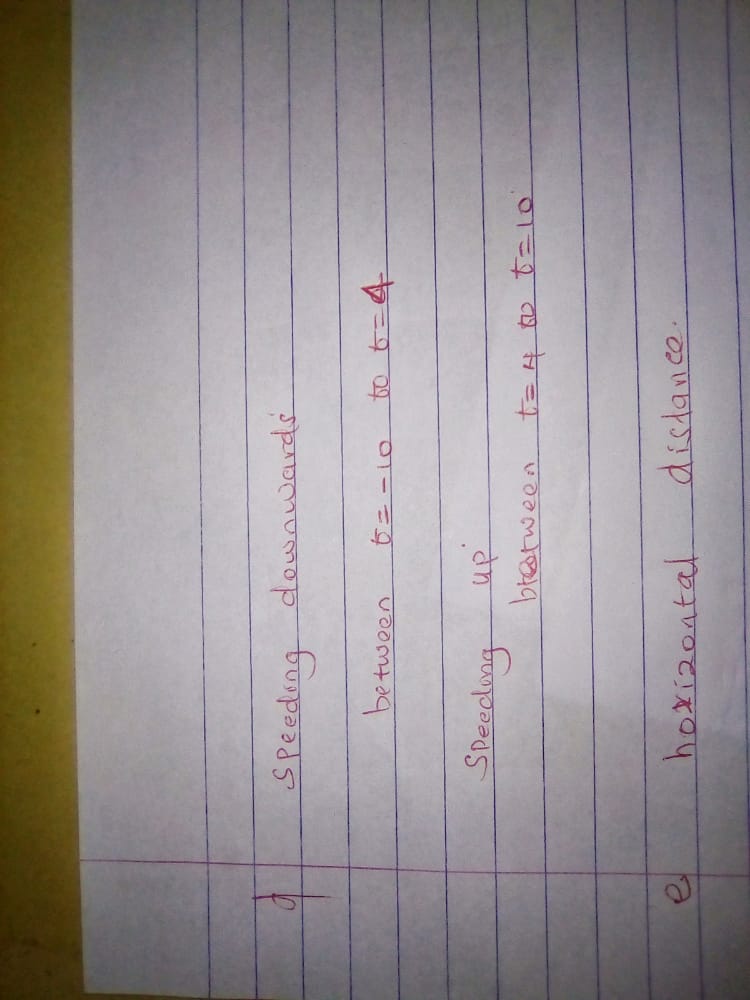 d speeding downwards
between t=-10 to t=4
speeding up
between t=4 to t=10
e horizontal distance.